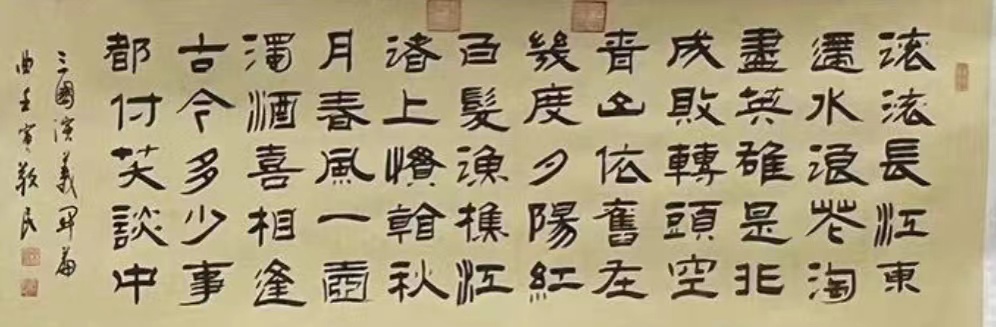 滚滚長江東
逝水浪花淘
盡英雄是非
成敗轉頭空
青山依舊在
幾度夕陽紅
白髮漁樵江
渚上慣看秋
月春風一壺
濁酒喜相逢
古今多少事
都付笑談中
三國演義開篇
曲壬寅敬民